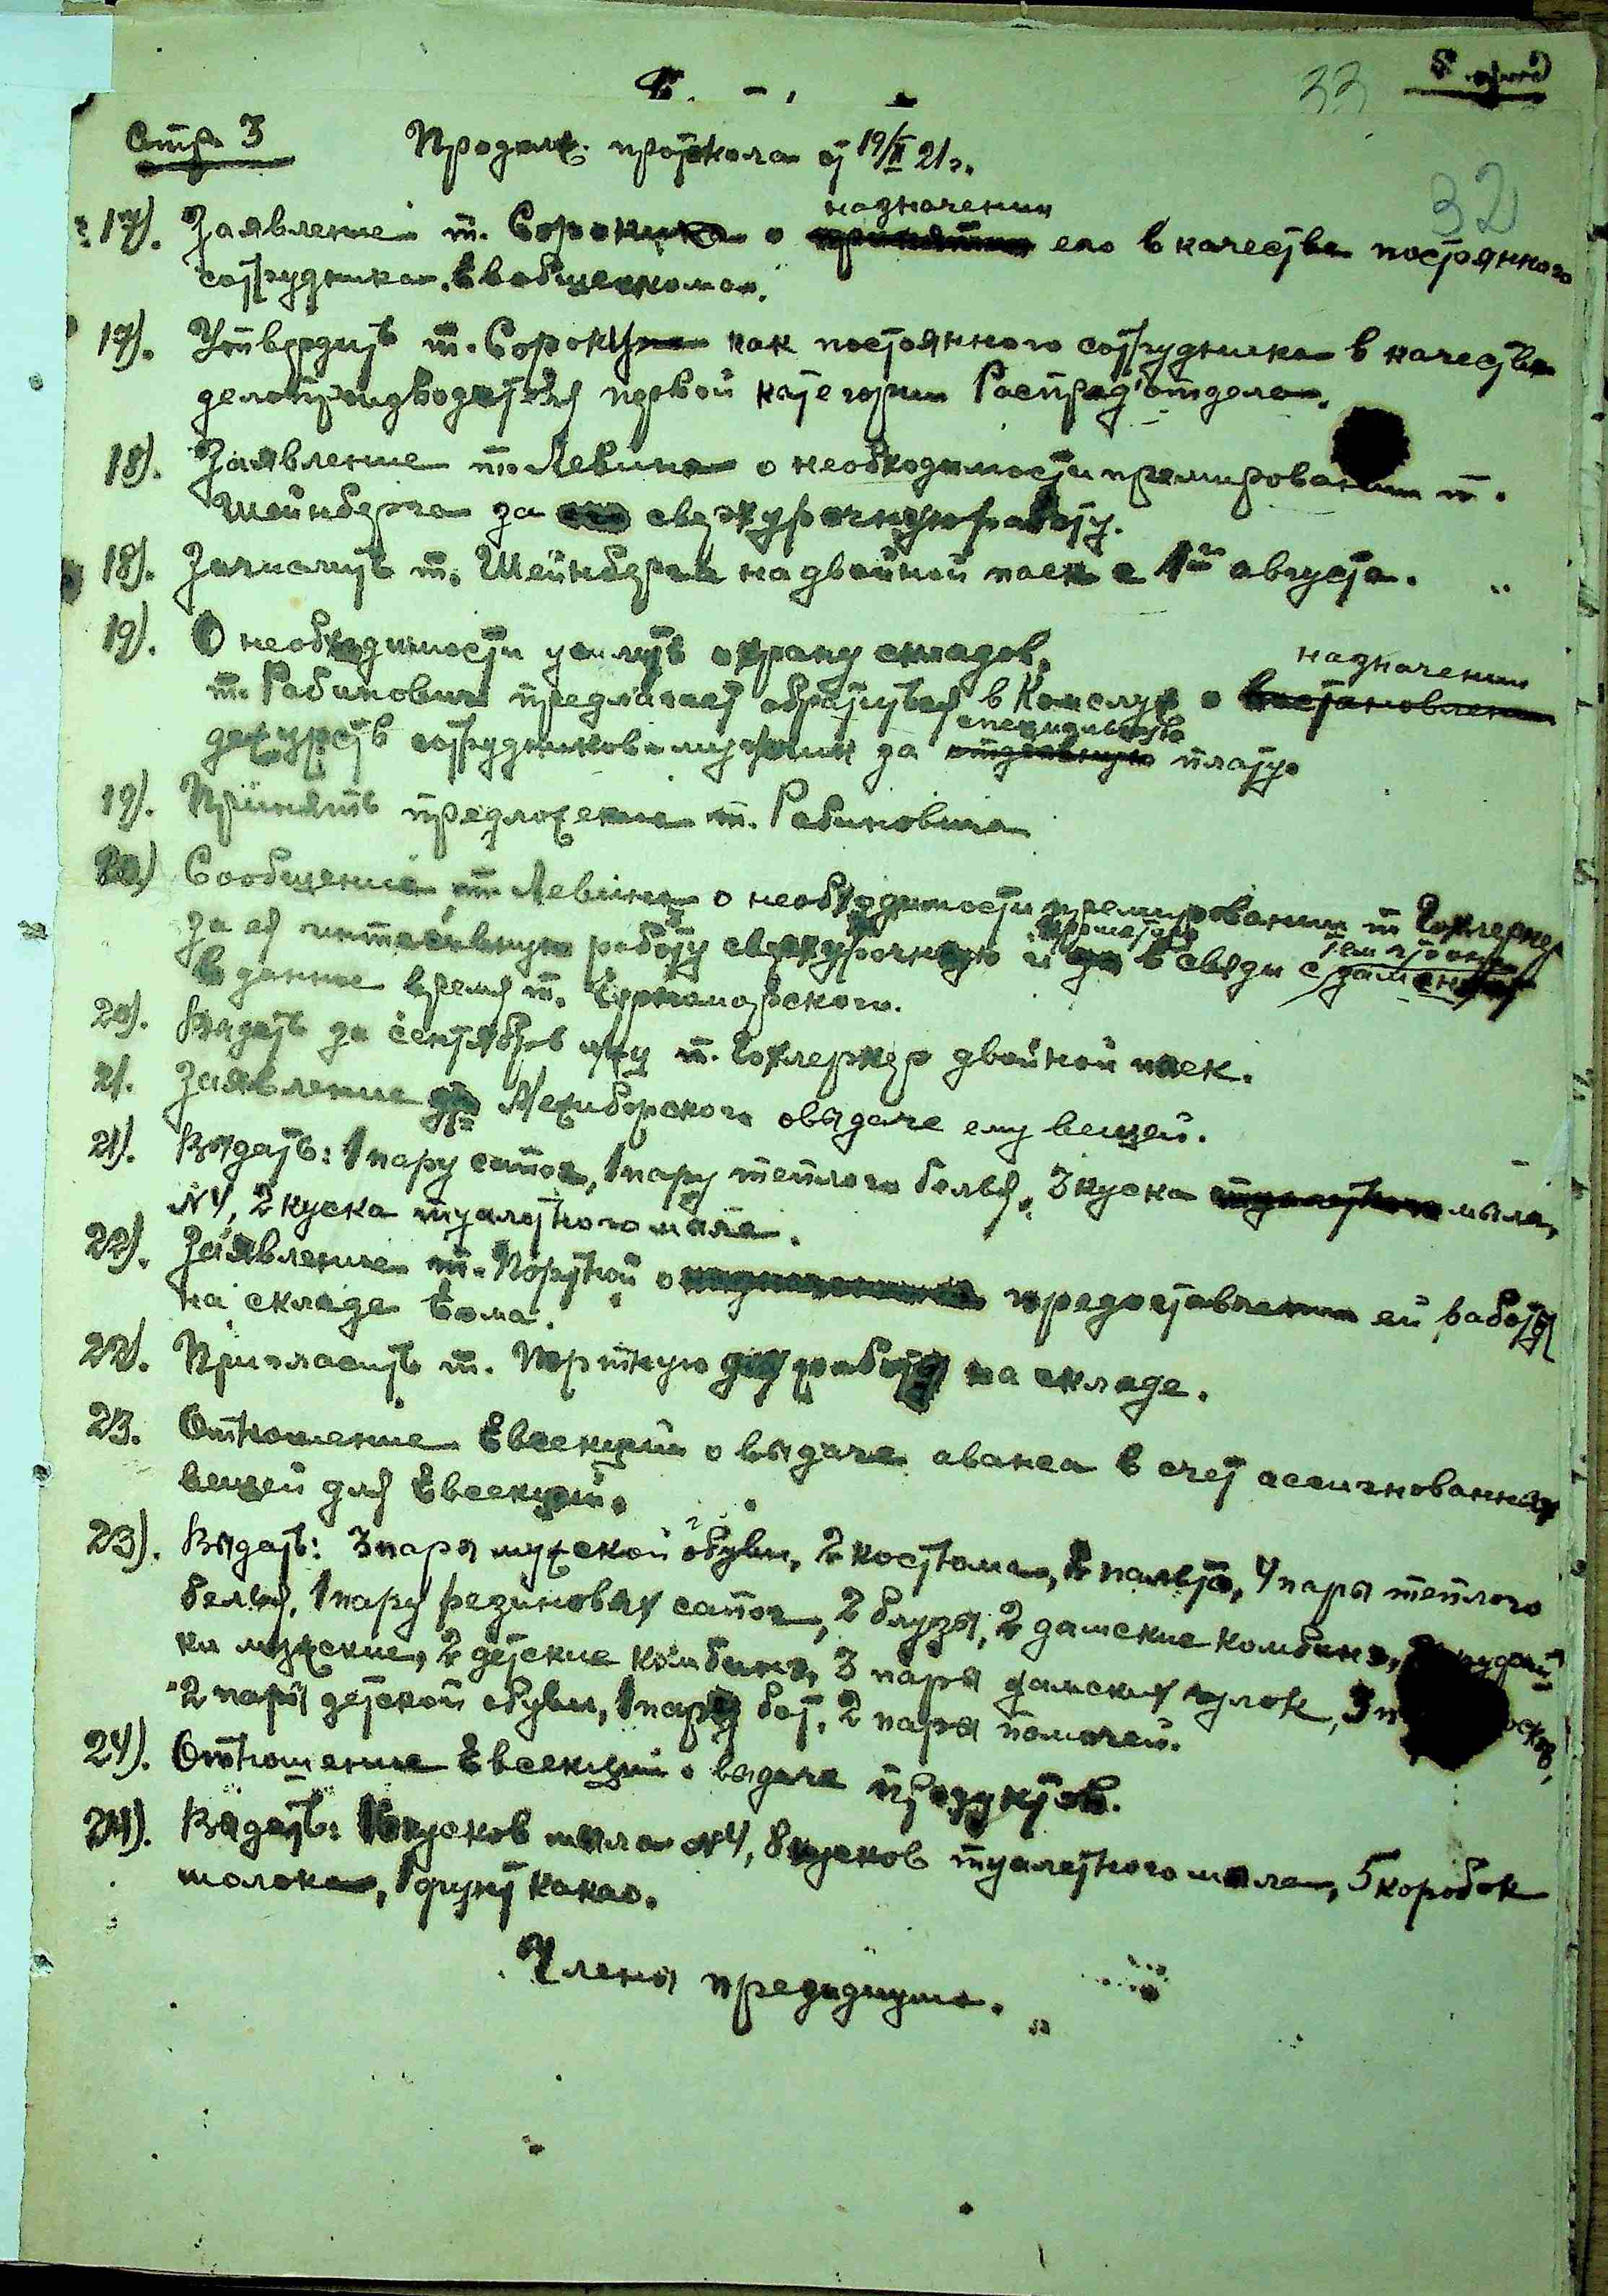 33
Стр. 3 Продолж. протокола от 19/X 21 г.
32
назначении
17). Заявление т. Сорокина о его в качестве постоянного
сотрудника Евобщесткома.
17). Утвердить т. Сорокина как постоянного сотрудника в качестве
делопроизводителя первой категории Распред'отдела.
18). Заявление т. Левина о необходимости премирования т.
Шейнберга за сверхурочную работу.
18). Зачислить т. Шейнберга на двойной паек с 1го августа.
19). О необходимости усилить охрану складов.
назначении
т. Рабинович предлагает обратиться в о
специальную
дежурств сотрудников мужчин за плату.
19). Принять предложение т. Рабиновича
20) Сообщение т. Левина о необходимости премирования т.
за её интенсивную работу сверхурочную и в связи с
в данное время т. Черноморского.
20). Выдать за сентябрь м-ц т. двойной паек.
21. Заявление Межиборского о выдаче ему вещей.
21). Выдать: 1 пару сапог, 1 пару теплого белья, 3 куска мыла,
N4, 2 куска туалетного мыла.
22). Заявление т. Портной о предоставлении ей работы
на складе
22). Пригласить т. Портную для работы на складе.
23. Отношение Евсекции о выдаче аванса в счет ассигнованных
вещей для Евсекции.
23). Выдать: 3 пары мужской обуви, 2 костюма, 2 пальто, 4 пары теплого
белья, 1 пару резиновых сапог, 2 блузы, 2 дамские комбинэ,
ки мужские, 2 детские комбинэ, 3 пары дамских чулок, 3
2 пары детской обуви, 1 пару бот, 2 пары помочей.
24). Отношение Евсекции о выдаче продуктов.
24). Выдать: кусков мыла N4, 8 кусков туалетного мыла, 5 коробок
молока, 1 фунт какао.
Члены президиума.